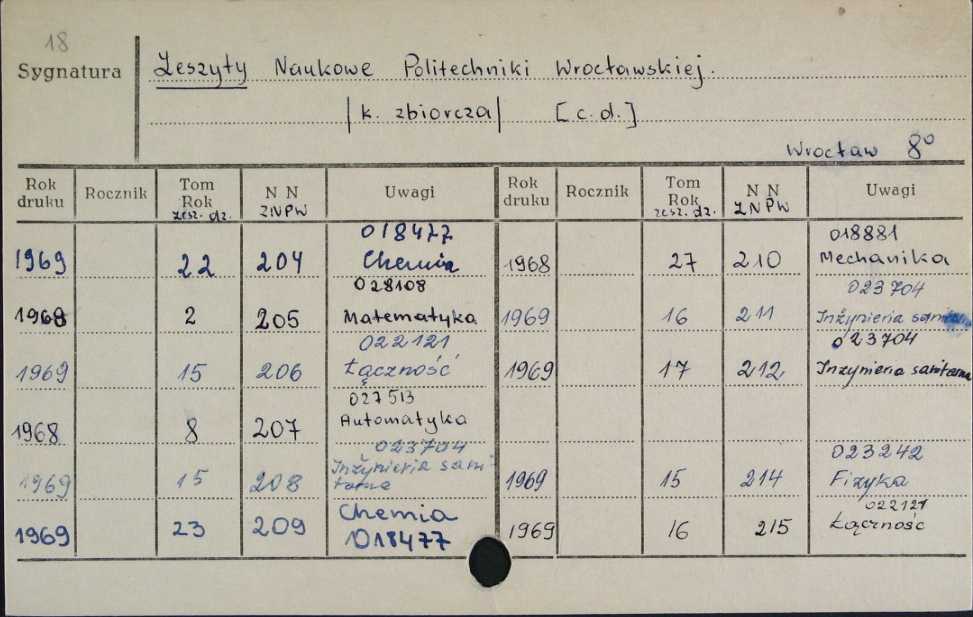 18
Sygnatura
Zeszyty Naukowe Politechniki Wrocławskiej.
|k. zbiorcza| [c.d.]
Wrocław 8°
Rok druku Rocznik Tom Rok zesz. dz. N N ZNPW Uwagi Rok druku Rocznik Tom Rok zesz. dz. N N ZNPW Uwagi
018477 018881
1969 22 204 Chemia 1968 27 210 Mechanika
028108 023704
1968 2 205 Matematyka 1969 16 211 Inżynieria
022121 023704
1969 15 206 Łączność 1969 17 212 Inżynieria sanitarna
027513
1968 8 207 Automatyka
023704 023242
1969 15 208 Inżynieria sani- 1969 15 214 Fizyka
tarna 022121
1969 23 209 Chemia 1969 16 215 Łączność
018477